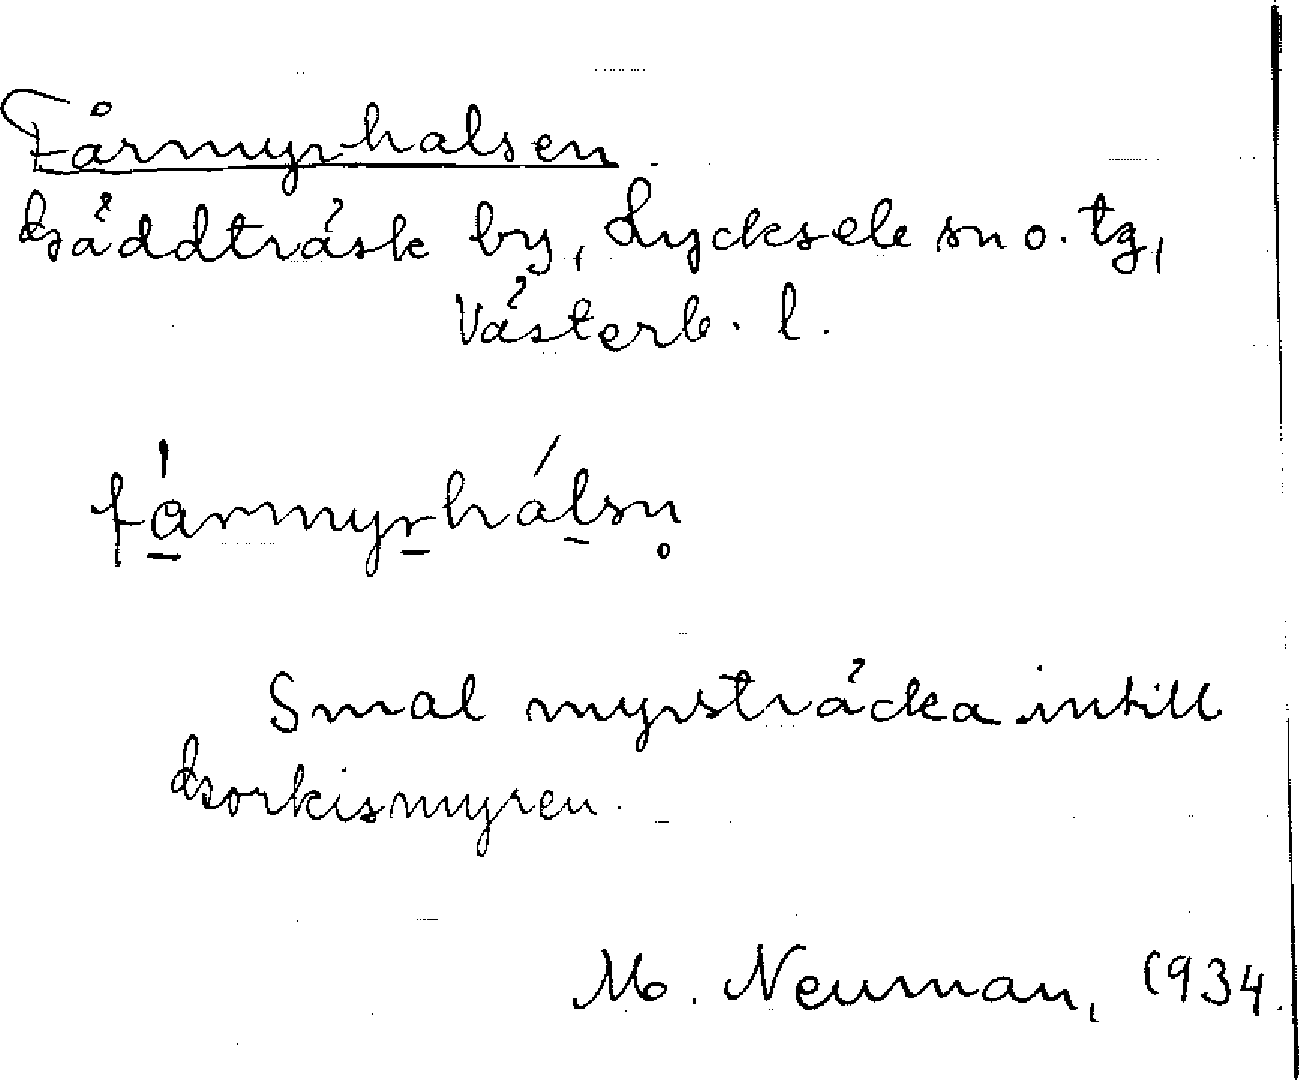 Fårmyrhalsen
Gäddträsk by, Lycksele sn o. tg,
Västerb. l.
fá̲rmyr̲hál̲sn̥
Smal myrsträcka intill
Gorkismyren.
M. Neuman, 1934.